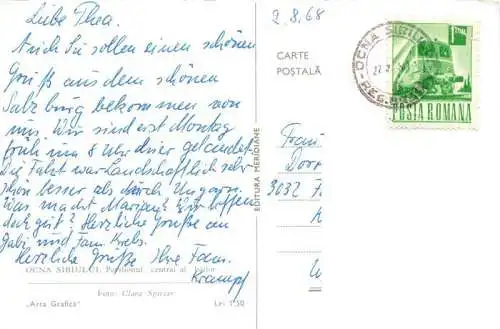 Liebe Thea.
Auch Sie sollen einen schönen
Gruß aus dem schönen
Salzburg bekommen von
uns. Wir sind erst Montag
früh um 8 Uhr hier gelandet.
Die Fahrt war Landschaftlich sehr
schön besser als durch Ungarn.
Was macht Mariann? Wir hoffen
doch gut? Herzliche Grüße an
Gabi und Fam. Krebs.
Herzliche Grüße Ihre Fam.
Krampf
OCNA SIBIULUI. Pavilionul central al băilor
Foto: Clara Spitzer
„Arta Grafică"
Lei 1,50
EDITURA MERIDIANE
2.8.68
CARTE
POȘTALĂ
OCNA SIBIULUI
POSTA ROMANA
Frau
3032